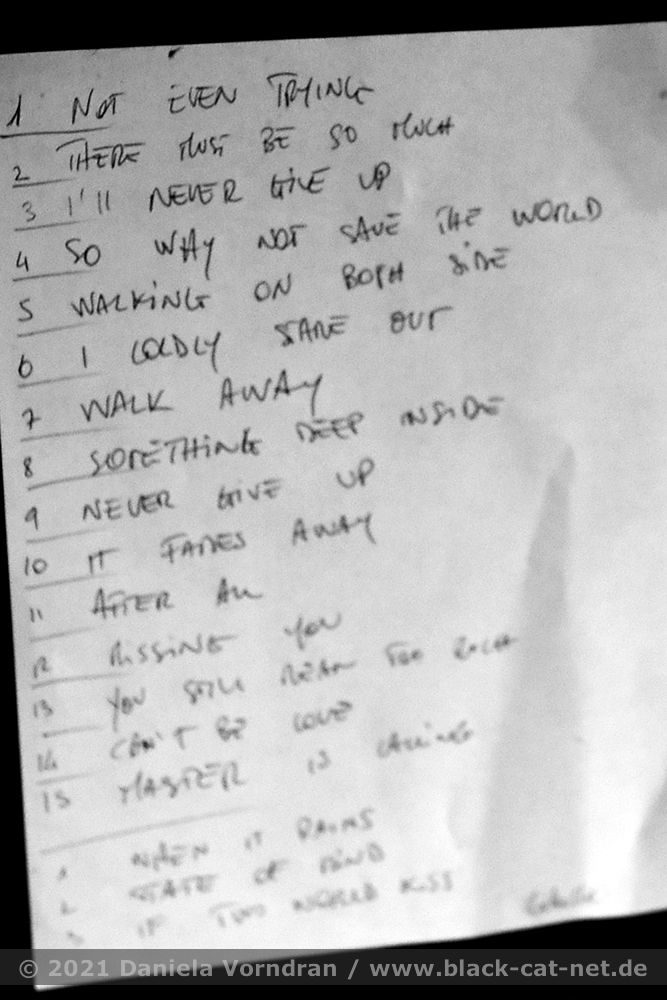 1 NOT EVEN TRYING
2 THERE MUST BE SO MUCH
3 I'll NEVER GIVE UP
4 SO WHY NOT SAVE THE WORLD
5 WALKING ON BOTH SIDE
6 I COLDLY STARE OUT
7 WALK AWAY
8 SOMETHING DEEP INSIDE
9 NEVER GIVE UP
10 IT FADES AWAY
11 AFTER ALL
12 MISSING YOU
13 YOU STILL MEAN TOO MUCH
14 CAN'T BE LOVE
15 MASTER IS CALLING
1 WHEN IT RAINS
2 STATE OF MIND
3 IF TWO WORLD KISS
© 2021 Daniela Vorndran / www.black-cat-net.de